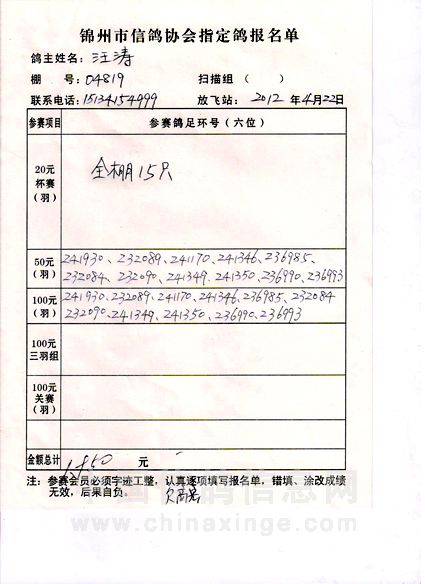 锦州市信鸽协会指定鸽报名单
鸽主姓名：汪涛
棚 号：04819 扫描组（ ）
联系电话：15134154999 放飞站：2012 年4月22日
参赛项目 参赛鸽足环号（六位）
20元
杯赛
（羽）
全棚15只
50元
（羽）
241930、232089、241170、241346、236985、
232084、232090、241349、241350、236990、236993
100元
（羽）
241930、232089、241170、241346、236985、232084
232090、241349、241350、236990、236993
100元
三羽组
100元
关赛
（羽）
金额总计 元
注：参赛会员必须字迹工整，认真逐项填写报名单，错填、涂改成绩
无效，后果自负。
中国信鸽信息网
www.chinaxinge.com